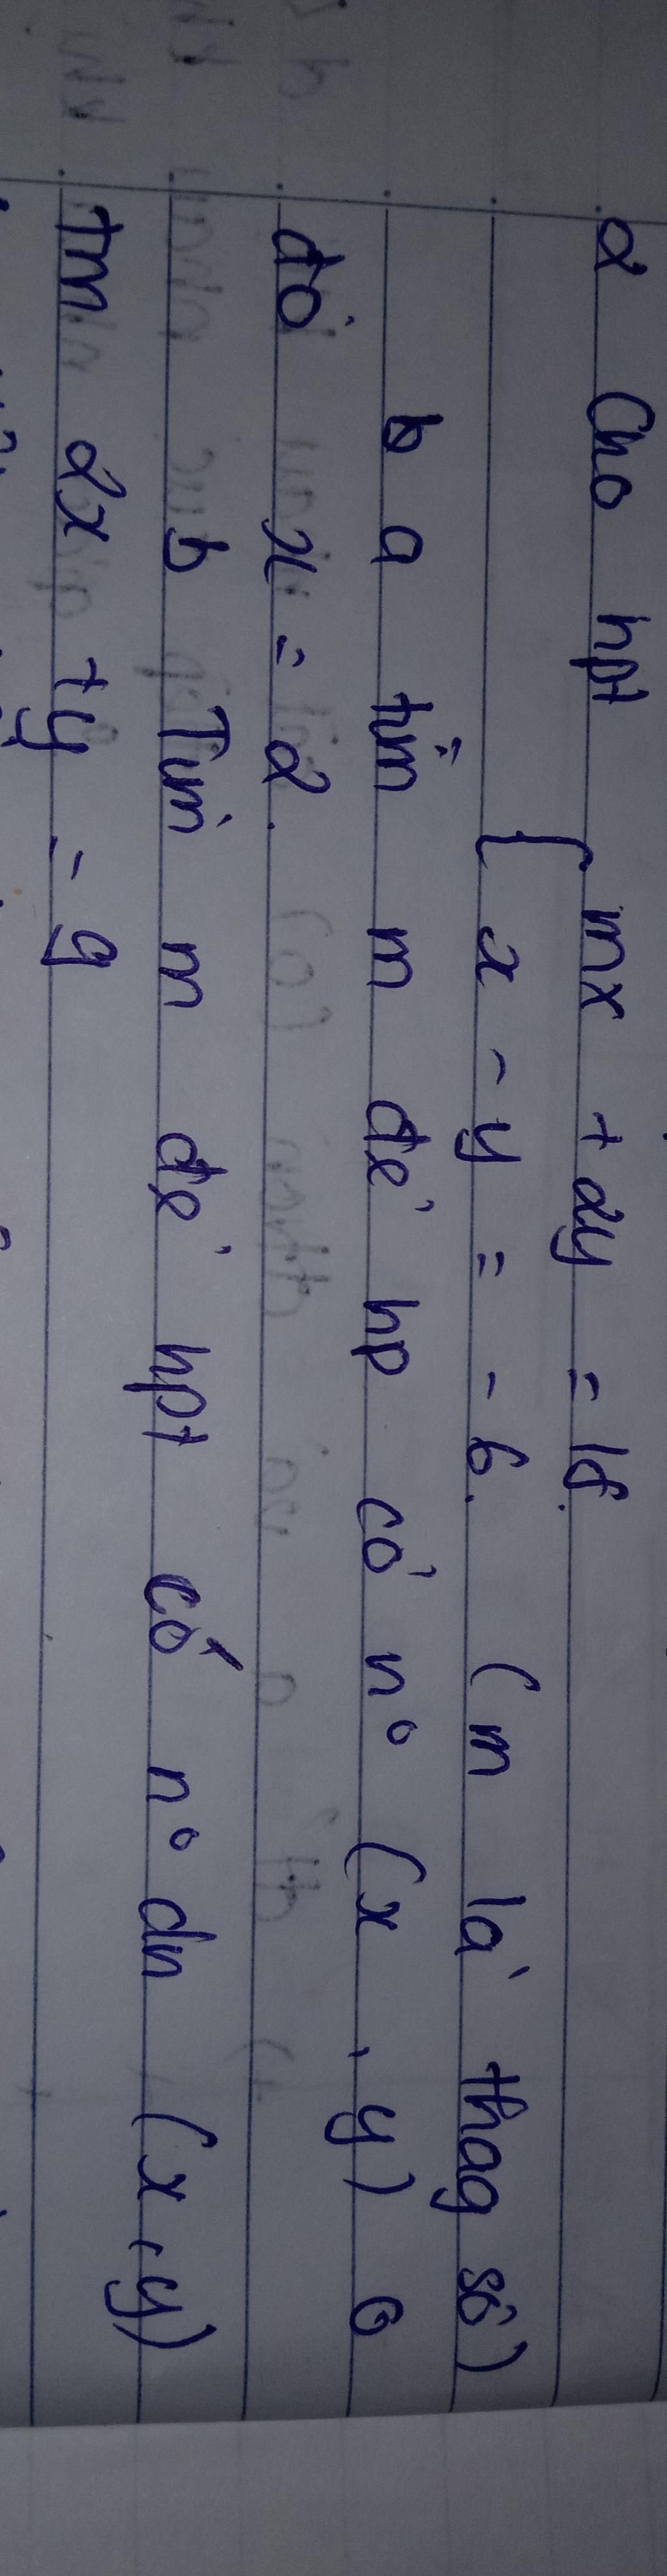 2 Cho hpt { mx + 2y = 18.
x - y = -6. (m là thag số)
b a tìm m để hp có nº (x, y) 6
đó x = 2.
b Tìm m để hpt có nº dn (x, y)
tm 2x + y = 9